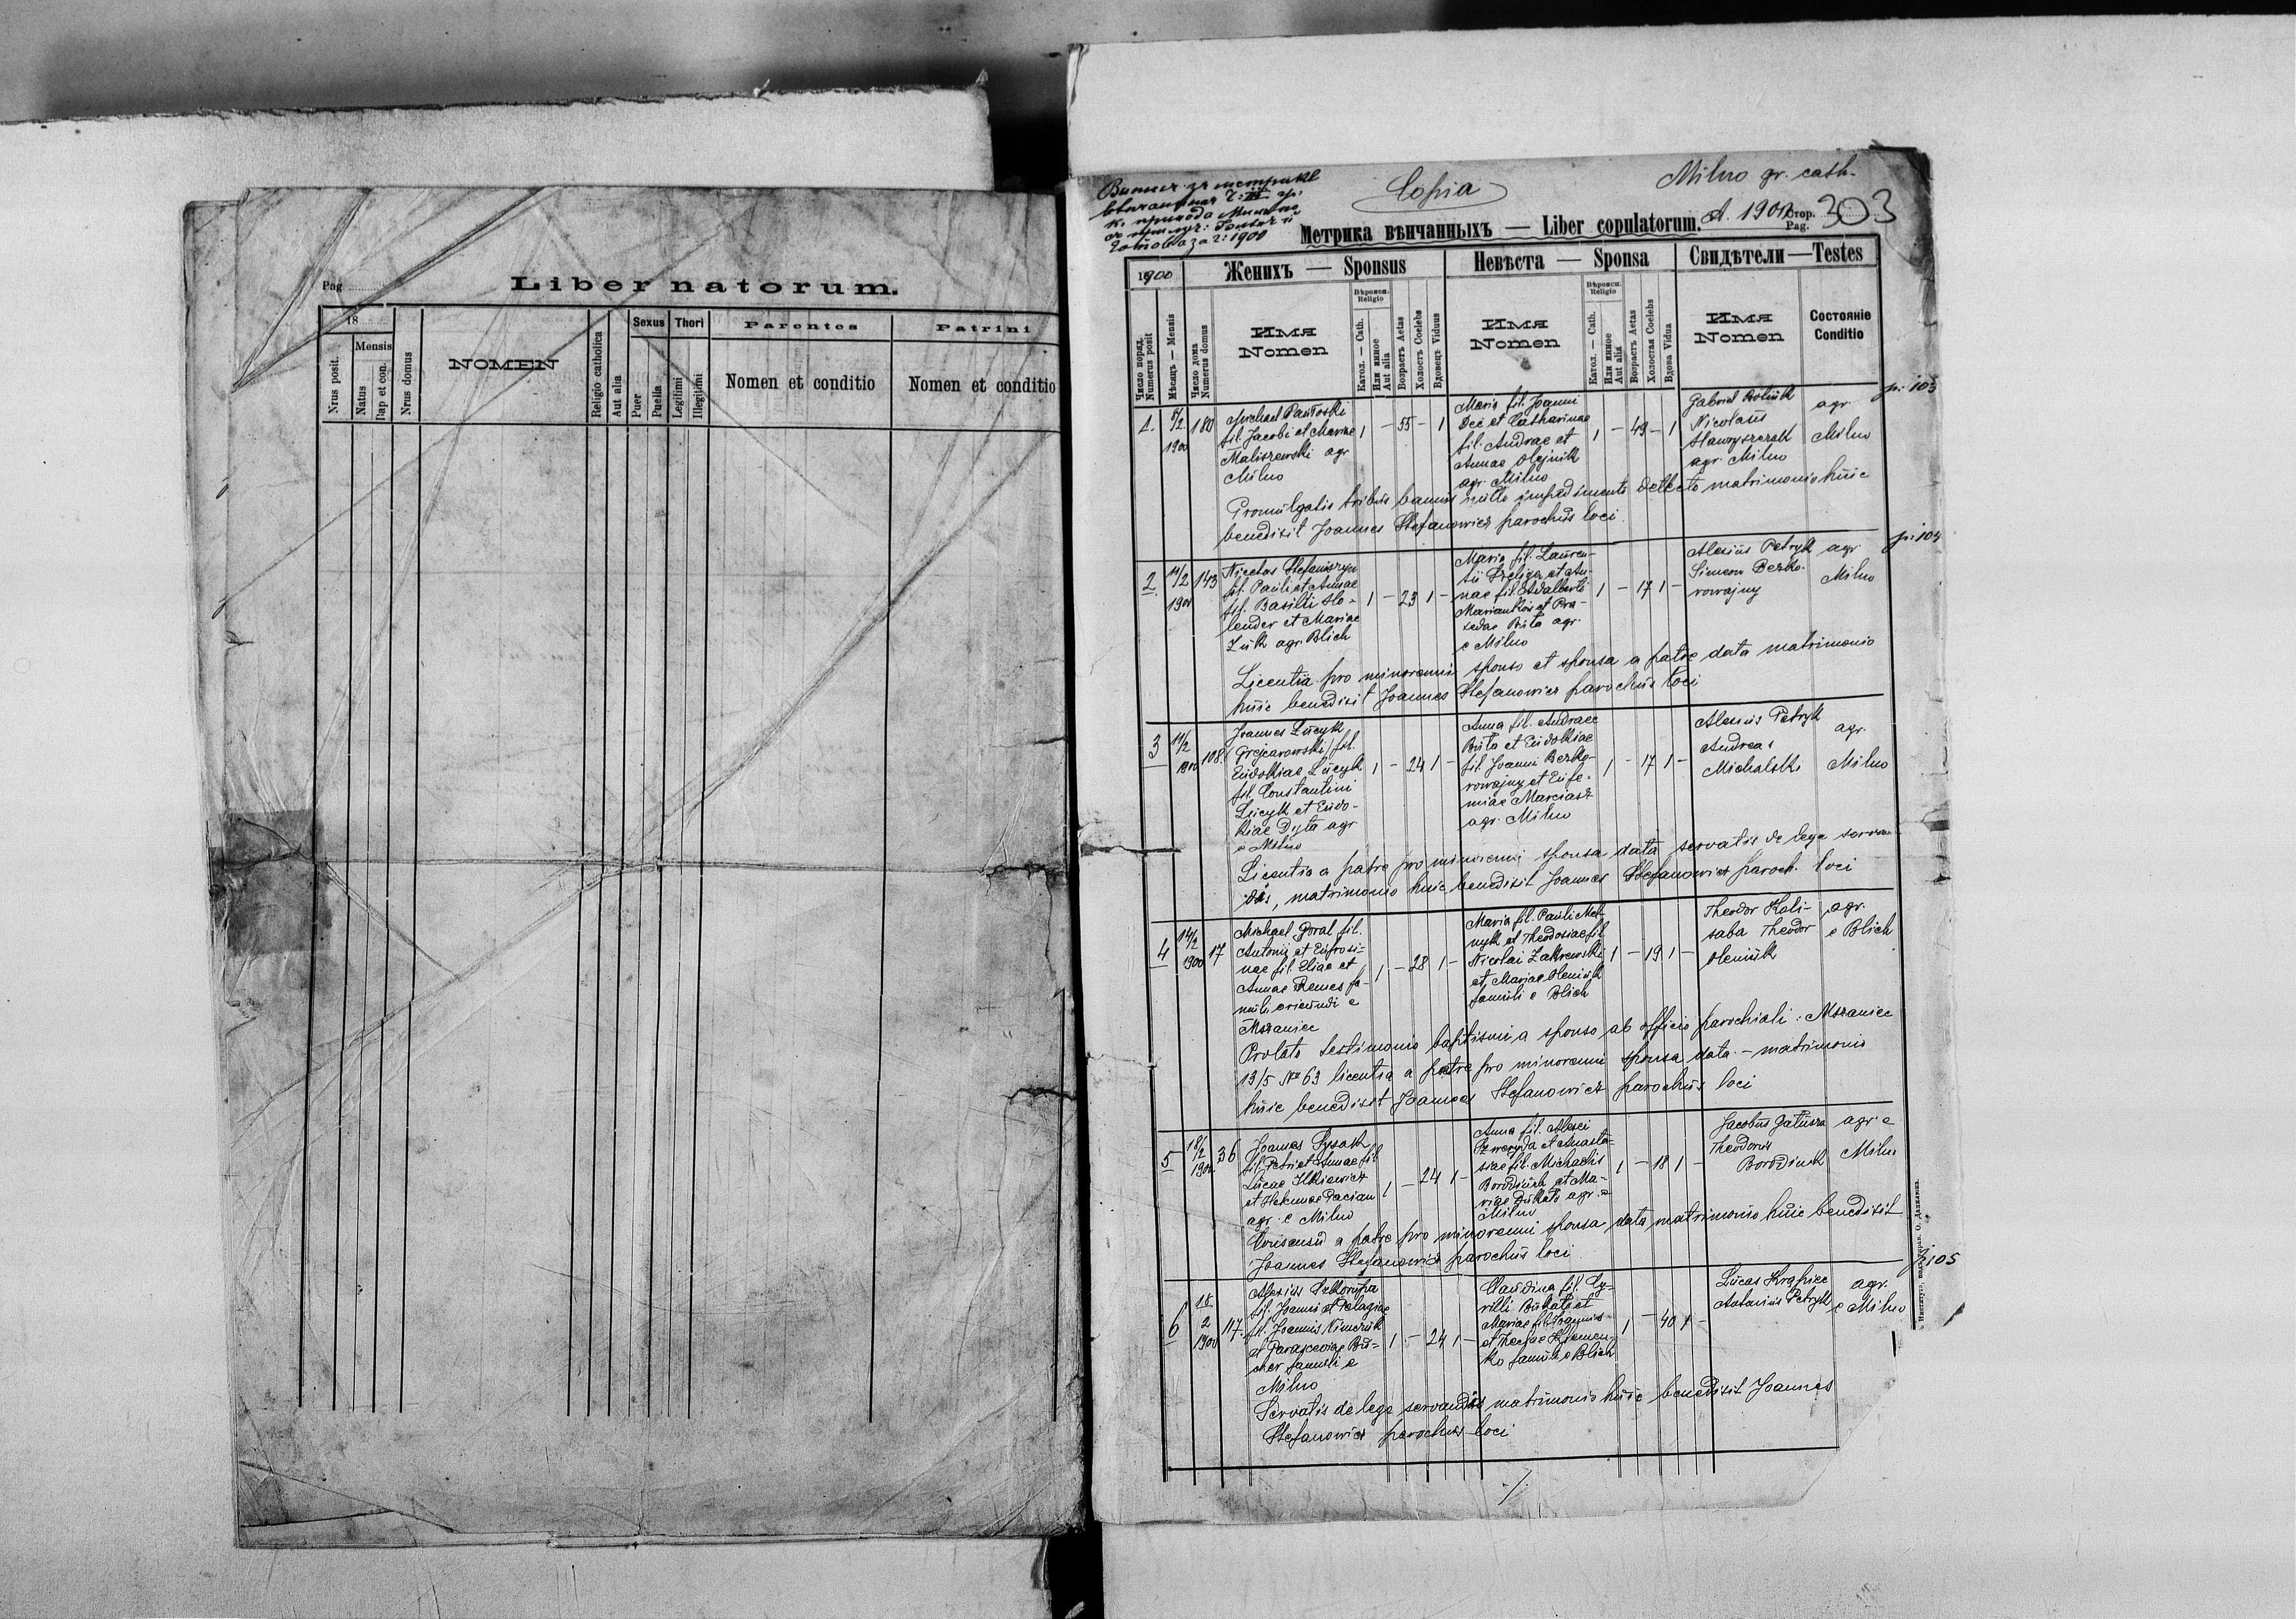 Pag.
Liber natorum.
18
Mensis
Sexus
Thori
Parentes
Patrini
Nrus posit.
Natus
Bap et con.
Nrus domus
NOMEN
Religio catholica
Aut alia
Puer
Puella
Legitimi
Illegitimi
Nomen et conditio
Nomen et conditio
Copia
Milno gr. cath.
Метрика вѣнчанныхъ — Liber copulatorum.
A. 1900
Стор.
Pag.
303
1900
Женихъ — Sponsus
Невѣста — Sponsa
Свидѣтели — Testes
Число поряд.
Numerus posit
Мѣсяцъ — Mensis
Число дома
Numerus domus
Имя
Nomen
Вѣроисп.
Religio
Катол. — Cath.
Или инное
Aut alia
Возрастъ Aetas
Холостъ Coelebs
Вдовецъ Viduus
Имя
Nomen
Вѣроисп.
Religio
Катол. — Cath.
Или инное
Aut alia
Возрастъ Aetas
Холостая Coelebs
Вдова Vidua
Имя
Nomen
Состояніе
Conditio
p. 103
1.
1900
180
Michael Pankoski
fil. Jacobi et Mariae
Maliszewski agr
Milno
1 – 55 – 1
Maria fil. Joanni
Dec et Catharinae
fil. Andrae et
Annae Olejnik
agr. Milno
1 – 49 – 1
Gabriel Boliuk
Nicolaus
Hawryszczuk
agr. Milno
agr.
Milno
Promulgatis tribus bannis nullo impedimento detecto matrimonio huic
benedixit Joannes Stefanowicz parochus loci
p. 104
2.
11/2
1900
143
Nicetas Stefaniszyn
fil. Pauli et Annae
fil. Basilii Ho-
lender et Mariae
Żuk agr. Blich
1 – 23 1 –
Maria fil. Lauren-
tii Preliza et An-
nae fil. Adalberti
Mariankow et Pra-
xedae Buta agr.
e Milno
1 – 17 1 –
Alexius Petryk
Simeon Bezko-
rowajny
agr
Milno
Licentia pro minorenni sponso et sponsa a patre data matrimonio
huic benedixit Joannes Stefanowicz parochus loci
3
11/2
1900
108
Joannes Łucyk
(Grejzarowski) fil.
Eudokiae Łucyk
fil. Constantini
Łucyk et Eudo-
kiae Dyta agr
e Milno
1 – 24 1 –
Anna fil. Andraee
Buta et Eudokiae
fil Joanni Bezko-
rowajny et Eufe-
miae Marciasz
agr. Milno
1 – 17 1 –
Alexius Petryk
Andreas
Michalski
agr.
Milno
Licentia a patre pro minorenni sponsa data servatis de lege servan-
dis, matrimonio huic benedixit Joannes Stefanowicz paroch. loci
4
14/2
1900
17
Michael Goral fil.
Antonii et Eufrosi-
nae fil. Eliae et
Annae Remes fa-
muli oriundi e
Mszaniec
1 – 28 1 –
Maria fil. Pauli Mel-
nyk et Theodosiae fil
Nicolai Zakrewski
et Mariae Oleniuk
famuli e Blich
1 – 19 1 –
Theodor Koli-
saba Theodor
Oleniuk
agr.
e Blich
Prolato testimonio baptismi a sponso ab officio parochiali: Mszaniec
13/5 No 63 licentia a patre pro minorenni sponsa data – matrimonio
huic benedixit Joannes Stefanowicz parochus loci
5
18/2
1900
36
Joannes Łysak
fil. Petri et Annae fil
Lucae Ilkiewicz
et Helenae Pacian
agr. e Milno
1 – 24 1 –
Anna fil. Alexei
Szweryda et Anasta-
siae fil. Michaelis
Borodiuk et Ma-
riae Dukato agr. e
Milno
1 – 18 1 –
Jacobus Gatusza
Theodorus
Borodiuk
agr e
Milno
Consensu a patre pro minorenni sponsa data matrimonio huic benedixit
Joannes Stefanowicz parochus loci
p. 105
6
18
2
1900
117.
Alexius
fil. Joanni et Pelagiae
fil. Joannis Nimczuk
et Parasceviae Bu-
cher famuli e
Milno
1 – 24 1 –
Claudina fil. Cy-
rilli Bukato et
Mariae fil. Joannis
et Theclae Klemen-
ko famula e Blich
1 – 40 1 –
Lucas Krapiec
Antonius Petryk
agr.
e Milno
Servatis de lege servandis matrimonio huic benedixit Joannes
Stefanowicz parochus loci